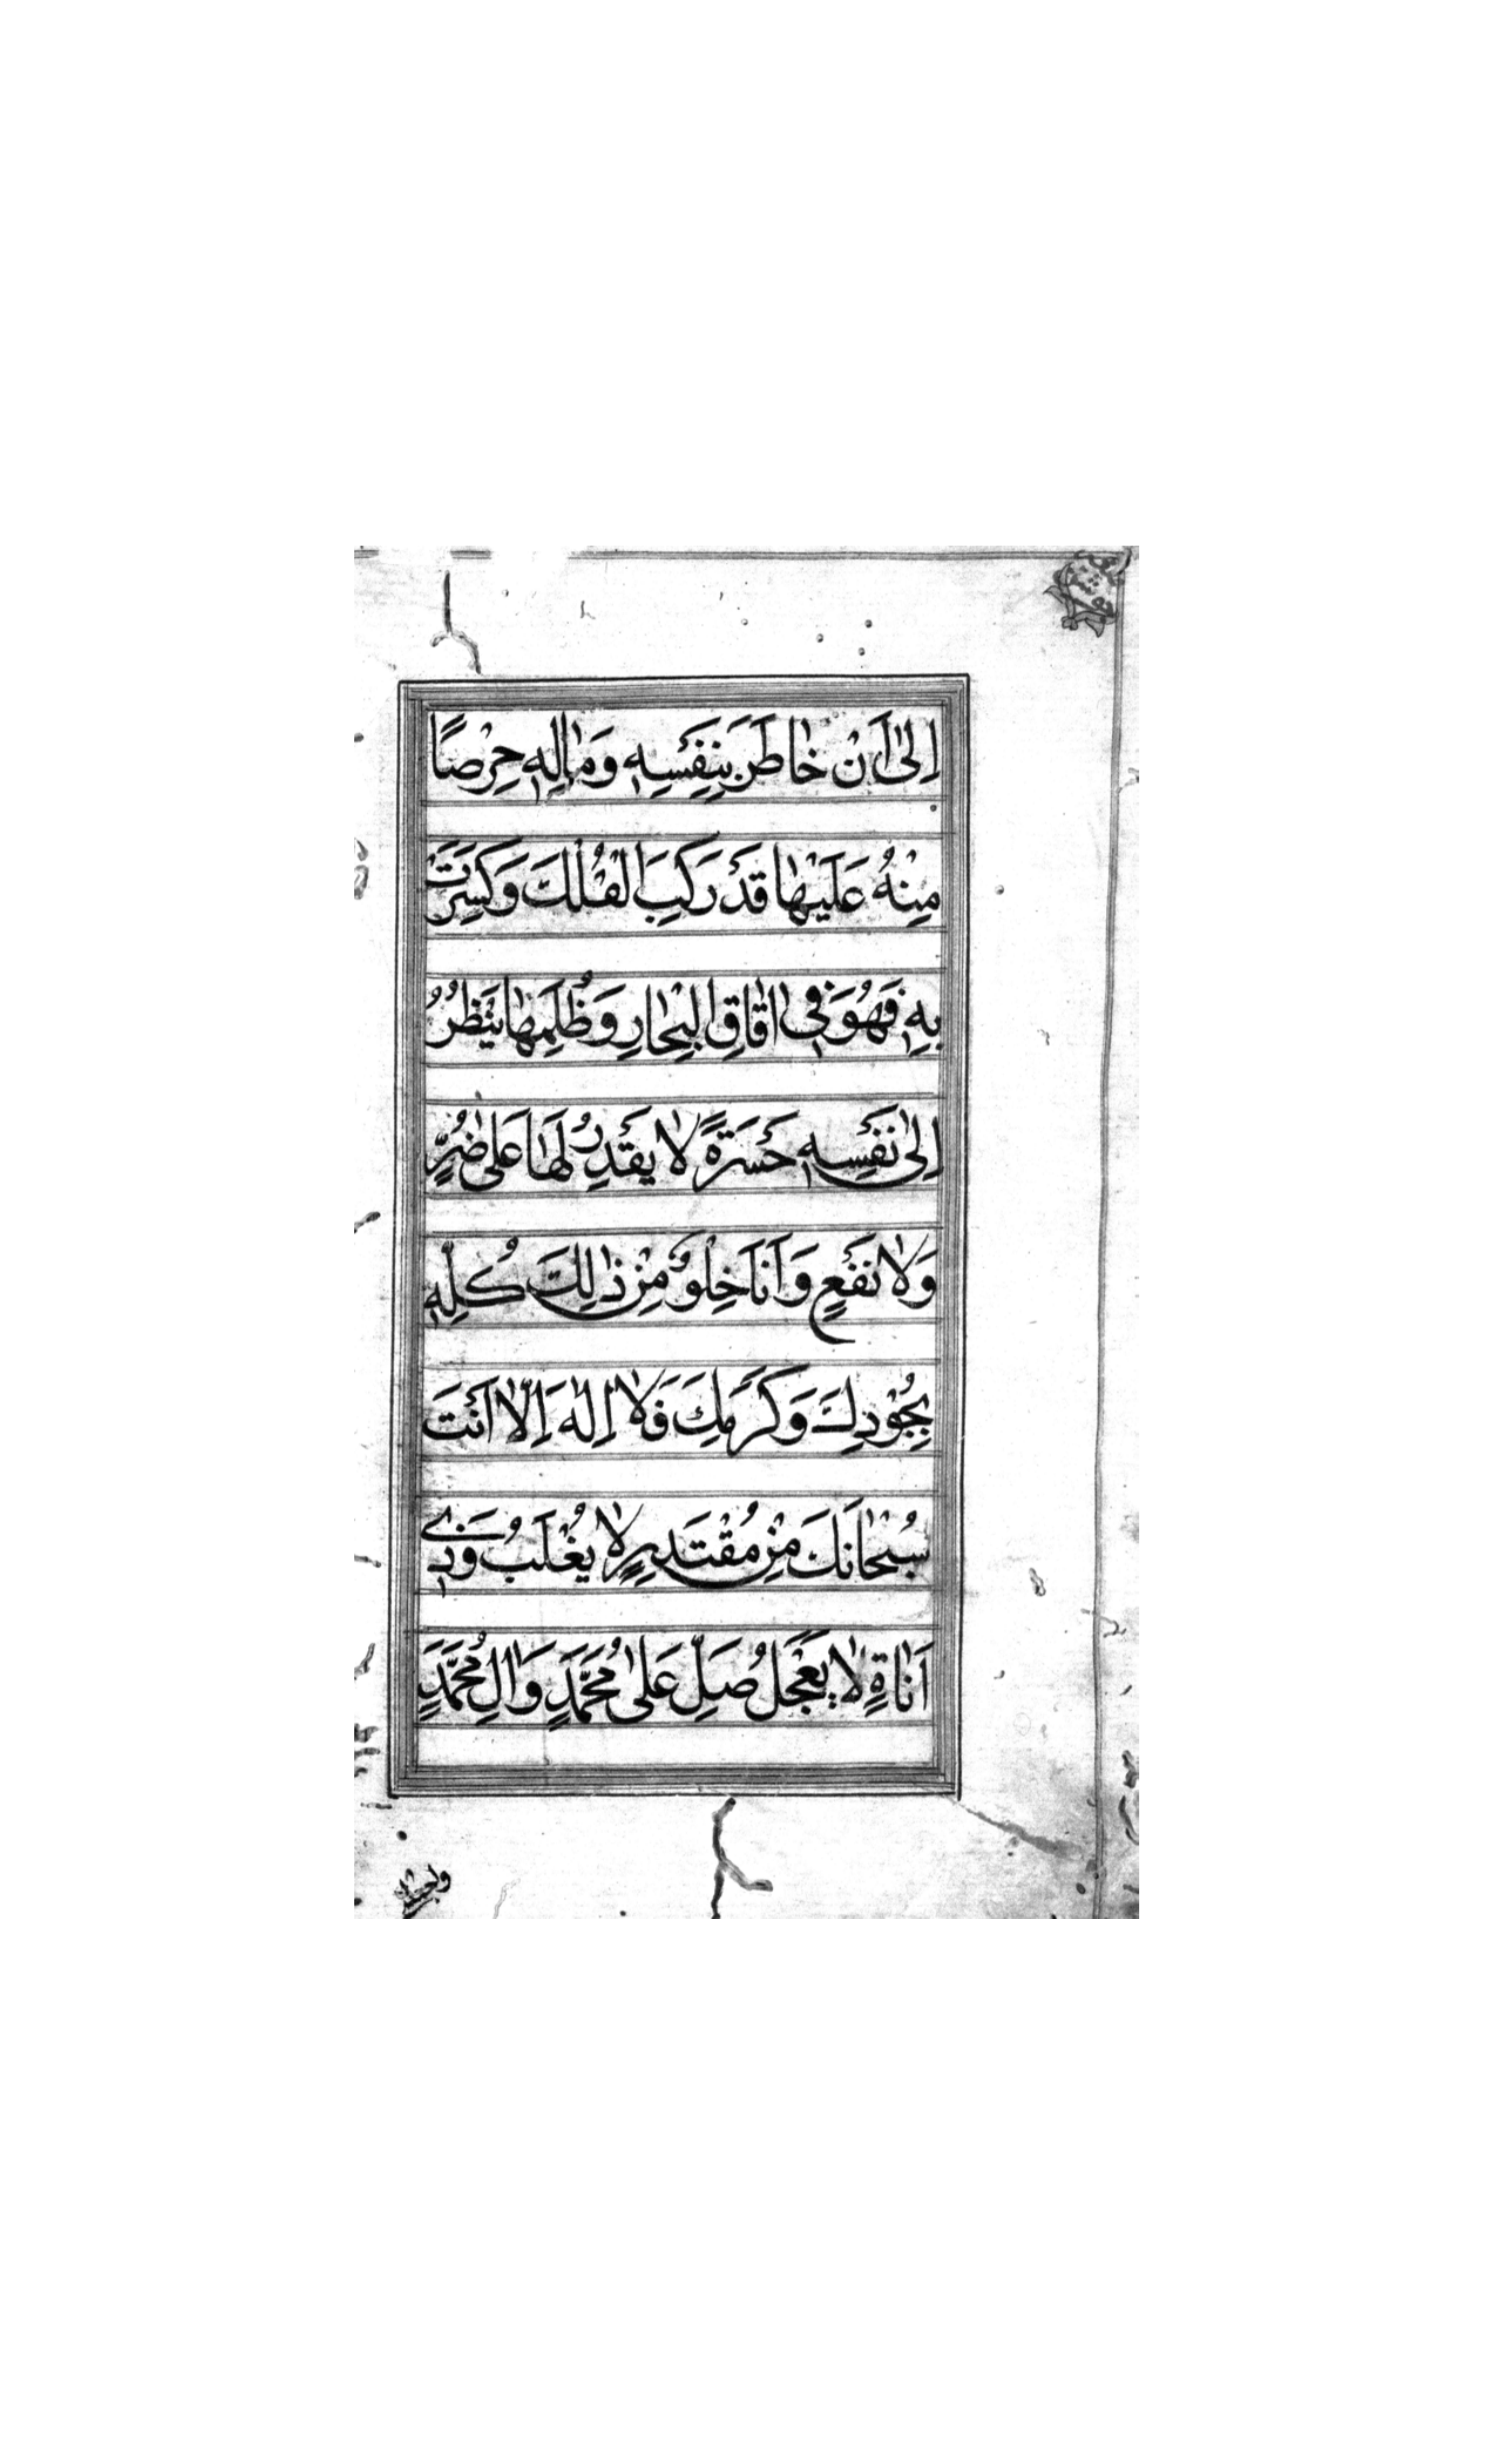 اِلىٰ اَنْ خٰاطَرَ بِنَفْسِهٖ وَمٰالِهٖ حِرْصًا
مِنْهُ عَلَيْهٰا قَدْ رَكِبَ الْفُلْكَ وَكُسِرَتْ
بِهٖ فَهُوَ فٖي اٰفٰاقِ الْبِحٰارِ وَظُلَمِهٰا يَنْظُرُ
اِلىٰ نَفْسِهٖ حَسْرَةً لٰا يَقْدِرُ لَهٰا عَلىٰ ضُرٍّ
وَلٰا نَفْعٍ وَاَنَا خِلْوٌ مِنْ ذٰلِكَ كُلِّهٖ
بِجُوْدِكَ وَكَرَمِكَ فَلٰا اِلٰهَ اِلّٰا اَنْتَ
سُبْحٰانَكَ مِنْ مُقْتَدِرٍ لٰا يُغْلَبُ وَذٖي
اَنٰاةٍ لٰا يَعْجَلُ صَلِّ عَلىٰ مُحَمَّدٍ وَاٰلِ مُحَمَّدٍ